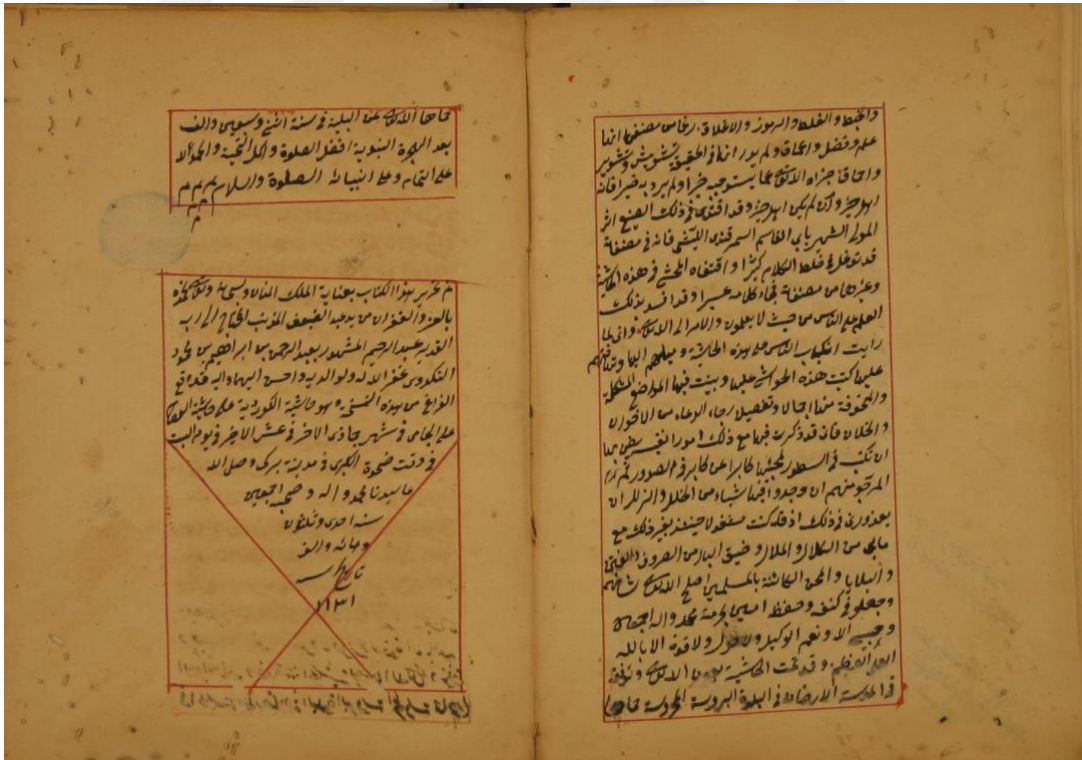 والخبط والغلط والرموز والاغلاق زعما من مصنفها انها
علم وفضل واعماق ولم يدر انها في الحقيقة تشويش وتشوير
واحماق جزاه الله تعالى عما يستوجبه خيرا ولم يرد به خيرا فانه
اهل خير وان لم يكن اهل خير وقد اقتدى في ذلك الصنيع اثر
المولى الشهير بابي القاسم السمرقندي الليثي فانه في مصنفاته
قد توغل في غلط الكلام كثيرا واقتفاه المحشي في هذه الحاشية
وغيرها من مصنفاته فجاء كلامه عسيرا وقد افسد بذلك
العلم على الناس من حيث لا يعلمون والامر الى الله تعالى واني لما
رايت انكباب الناس على هذه الحاشية وميلهم اليها
عليها كتبت هذه الحواشي عليها وبينت فيها المواضع المشكلة
منها اجمالا وتفصيلا رجاء الدعاء من الاقران
والخلان فاني قد ذكرت فيها مع ذلك امورا نفيسة
ان تكتب في السطور كابرا عن كابر في الصدور ثم
المرجو منهم ان وجدوا فيها شيئا من الخلل والزلل ان
يعذروني في ذلك اذ قد كنت مشغولا حينئذ بغير ذلك مع
ما بي من الكلال والملال وضيق البال من الصروف والفتن
والبلايا والمحن الكائنة بالمسلمين اصلح الله تعالى شانهم
وجعلهم في كنفه وحفظه امين بحرمة محمد واله اجمعين
وحسبي الله ونعم الوكيل ولا حول ولا قوة الا بالله
العلي العظيم وقد تمت الحاشية بعون الله تعالى وتوفيقه
في المدرسة في البلدة المحروسة حماها
حماها الله تعالى عن البلية في سنة اثني وسبعين والف
بعد الهجرة النبوية افضل الصلوة واكمل التحية والحمد لله
على التمام وعلى انبيائه الصلوة والسلام م م م
م م
م
تم تحرير هذا الكتاب بعناية الملك المنان ونسبحه وتعالى نحمده
بالعز والغفران من يد عبد الضعيف المذنب المحتاج الى ربه
القدير عبد الرحيم المشهور بعبد الرحمن بن ابراهيم بن محمود
غفر الله له ولوالديه واحسن اليهما واليه قد وقع
الفراغ من هذه النسخة وهو حاشية الكوردية على حاشية العصام
على الجامي في شهر جماذى الاخر في عشر الاخر في يوم السبت
في وقت ضحوة الكبرى في مدينة بركي وصل الله
على سيدنا محمد واله وصحبه اجمعين
سنه احدى وثلثون
ومائه والف
تاريخ
١١٣١